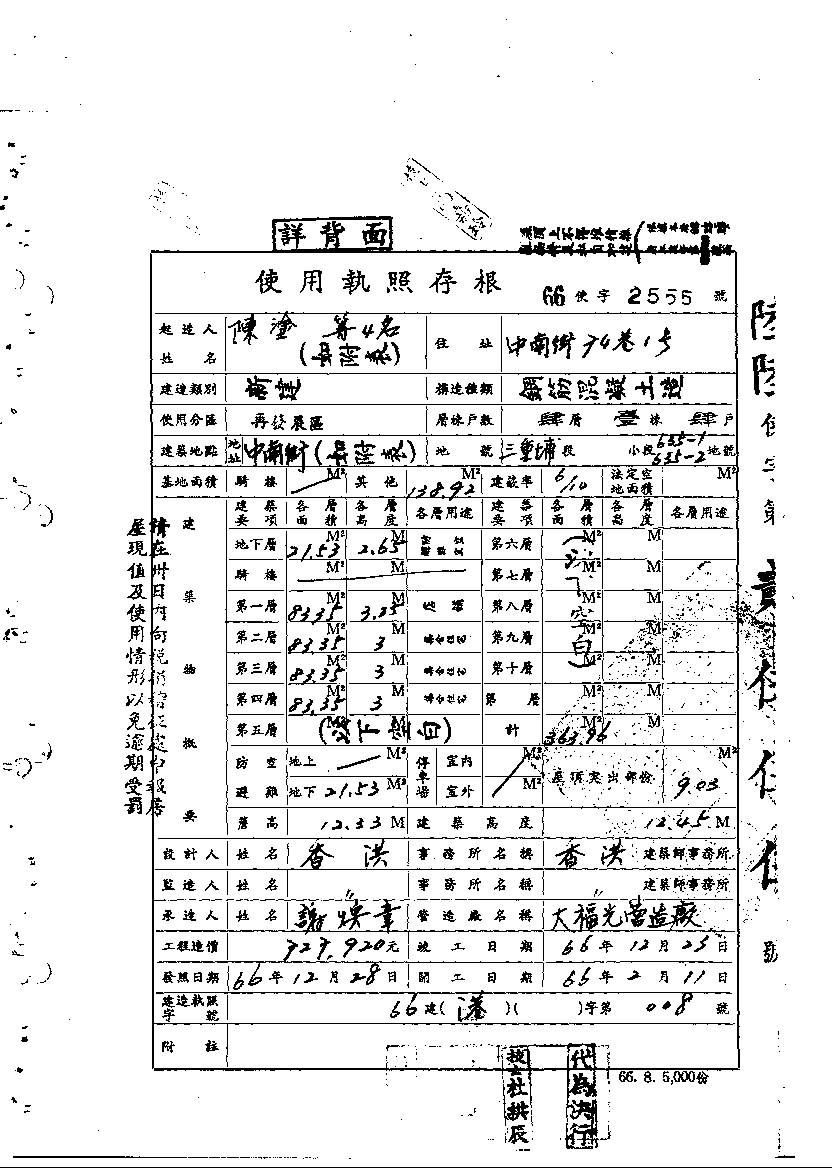 詳背面
使用執照存根
66 使字 2555 號
起造人姓名 陳塗 等4名 住址 中南街74巷1号
建造類別 新建 構造種類 鋼筋混凝土造
使用分區 再發展區 層棟戶數 肆層 壹棟 肆戶
建築地點 地址 中南街 地號 三重埔段 小段 635-1 635-2 地號
基地面積 騎樓 M² 其他 138.92 M² 建蔽率 6/10 法定空地面積 M²
建築要項 各層面積 各層高度 各層用途 建築要項 各層面積 各層高度 各層用途
地下層 21.53 M² 2.65 M 第六層 M² M
騎樓 M² M 第七層 M² M
第一層 83.35 M² 3.25 M 第八層 M² M
第二層 83.35 M² 3 M 第九層 M² M
第三層 83.35 M² 3 M 第十層 M² M
第四層 83.35 M² 3 M 第 層 M² M
第五層 M² (以下空白) M 計 363.96 M²
(以下空白)
建築物概要
防空避難 地上 M² 停車場 室內 M² 屋頂突出部份 9.03 M²
地下 21.53 M² 室外 M²
簷高 12.33 M 建築高度 12.45 M
設計人 姓名 香洪 事務所名稱 香洪 建築師事務所
監造人 姓名 〃 事務所名稱 〃 建築師事務所
承造人 姓名 謝煥章 營造廠名稱 大福光營造廠
工程造價 727,920元 竣工日期 66年12月23日
發照日期 66年12月28日 開工日期 66年2月11日
建造執照字號 66建(港)( )字第 008 號
附註
請在卅日內向稅捐稽征處申報房
屋現值及使用情形以免逾期受罰
技士杜拱辰
代為決行
66. 8. 5,000份